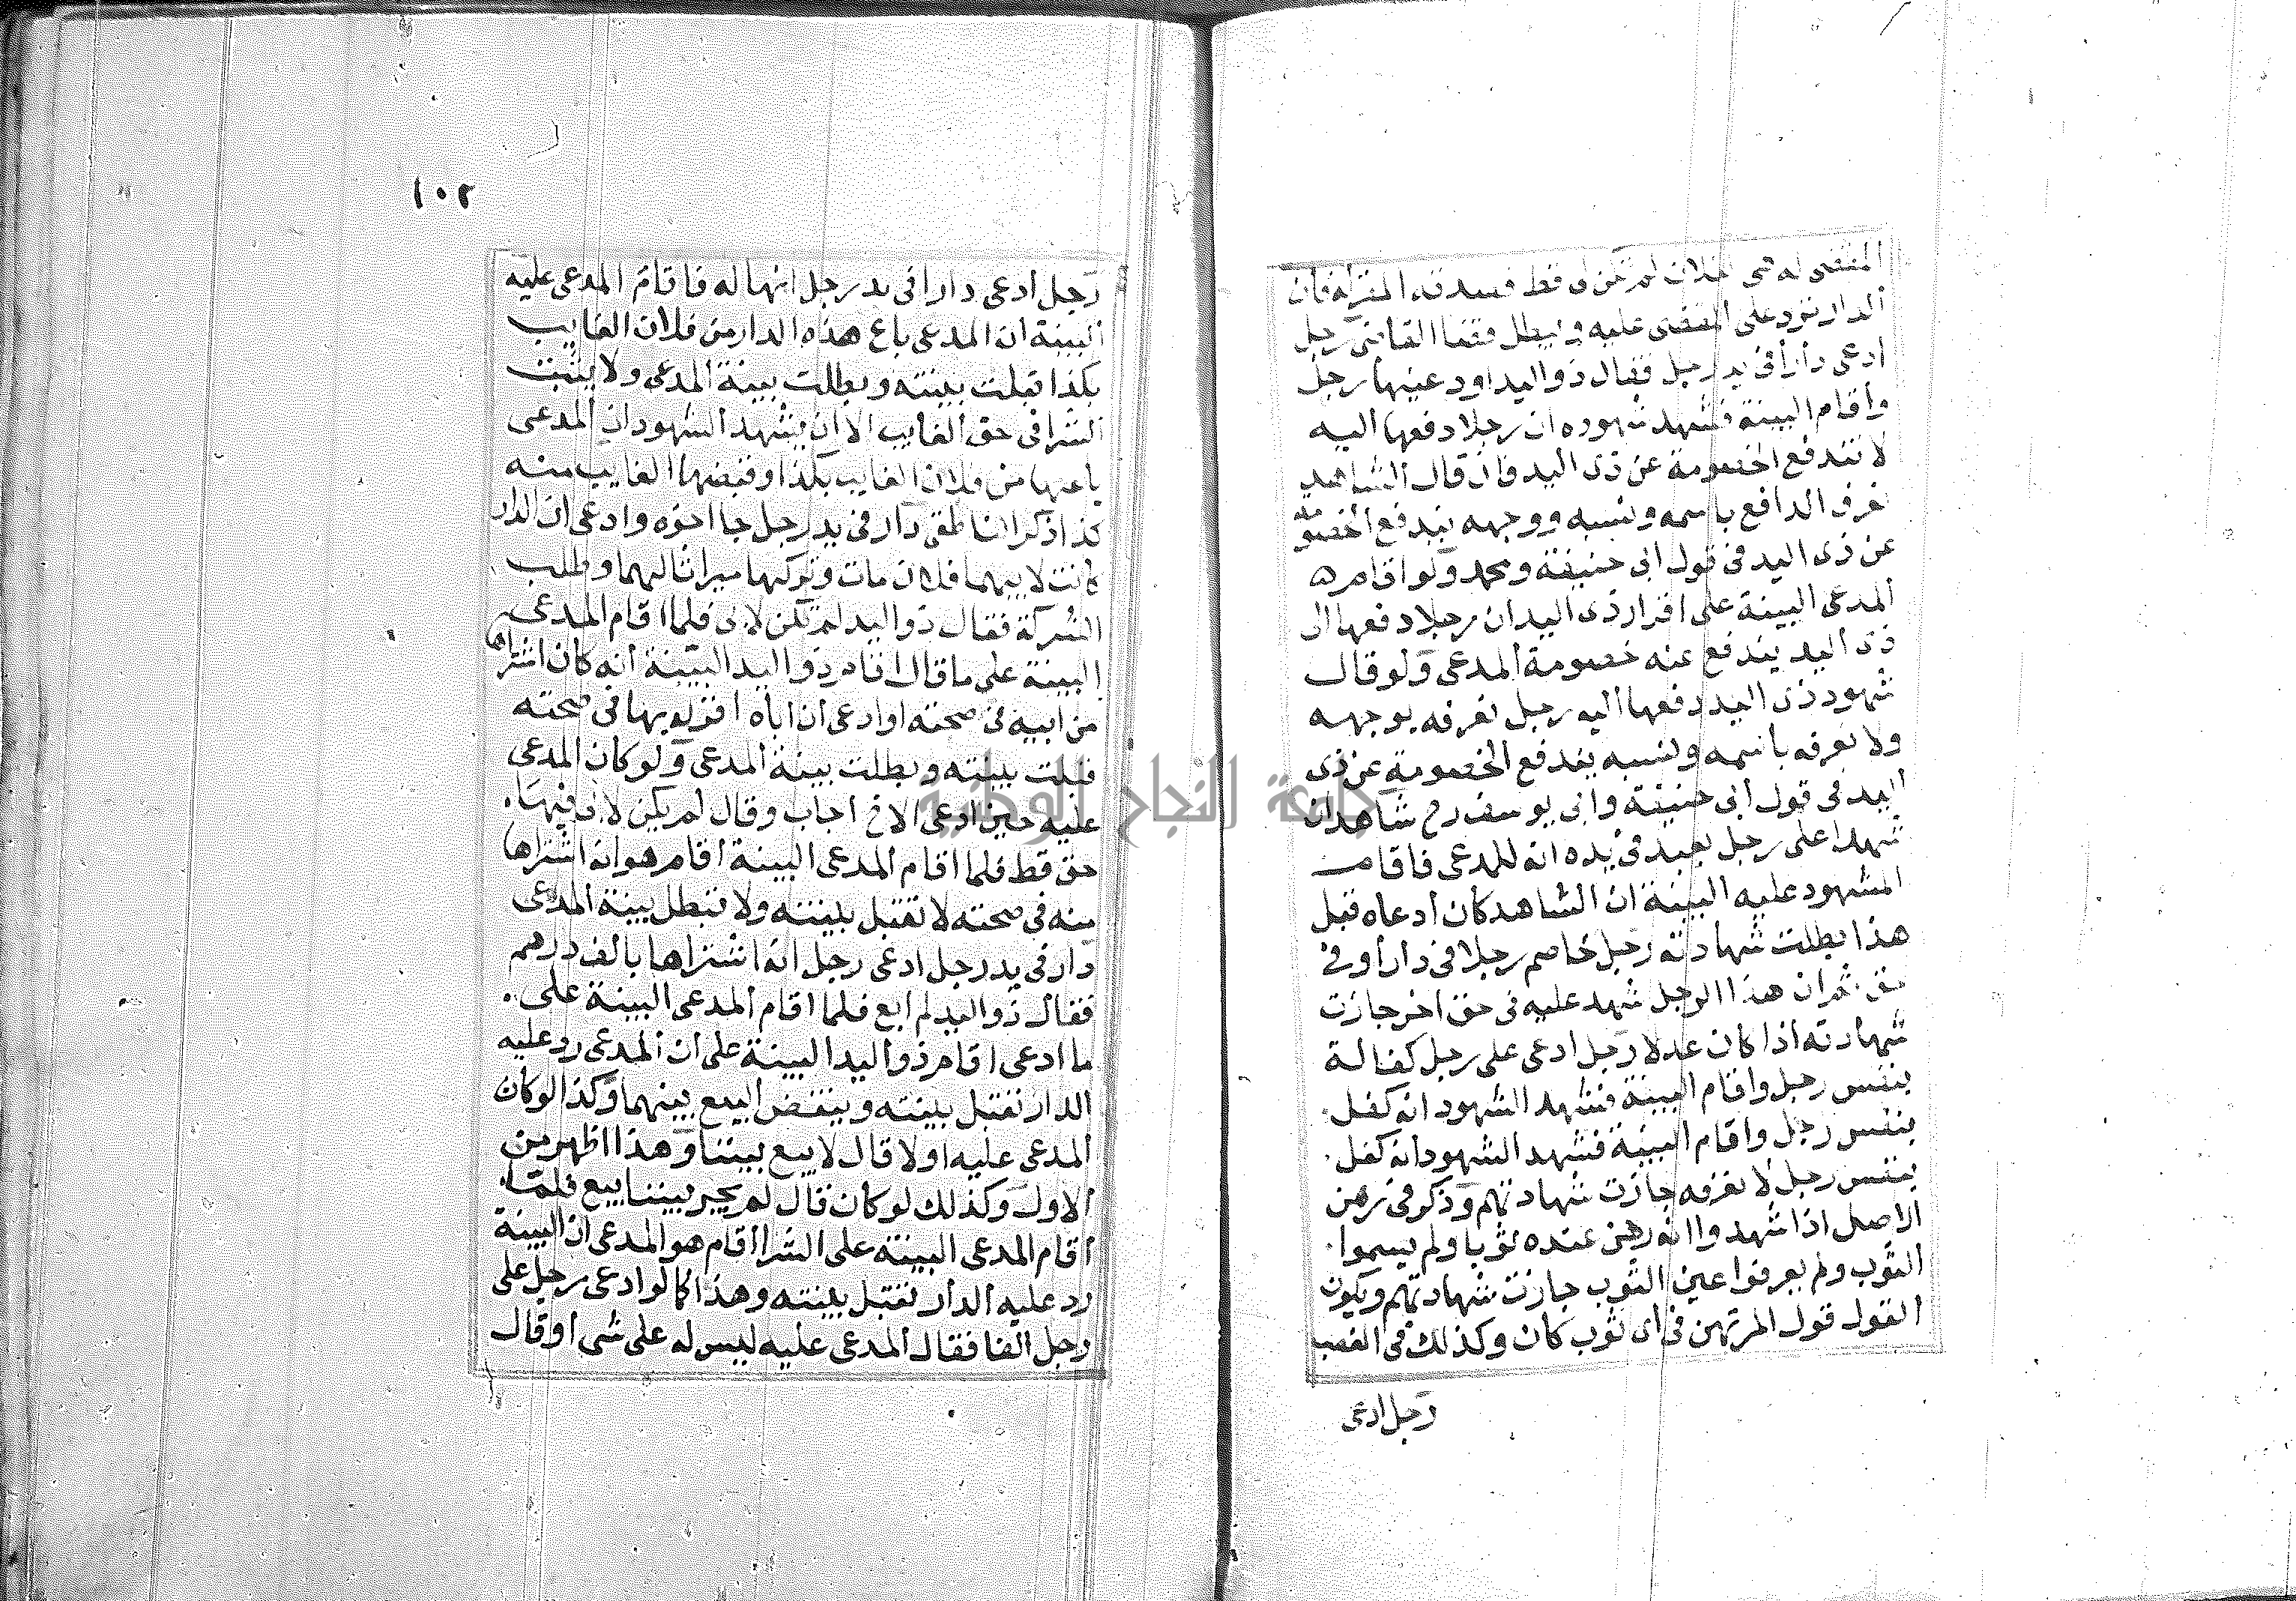 المقضى له هى لفلان لم تكن لى قط فصدقه المقر له فان
الدار ترد على المقضى عليه ويبطل قضا القاضى رجل
ادعى دارا فى يد رجل فقال ذو اليد اودعنيها رجل
واقام البينة فشهد شهوده ان رجلا دفعها اليه
لا تندفع الخصومة عن ذى اليد فان قال الشاهد
نعرف الدافع باسمه ونسبه ووجهه تندفع الخصومة
عن ذى اليد فى قول ابى حنيفة ومحمد ولو اقام
المدعى البينة على اقرار ذى اليد ان رجلا دفعها الى
ذى اليد يندفع عنه خصومة المدعى ولو قال
شهود ذى اليد دفعها اليه رجل نعرفه بوجهه
ولا نعرفه باسمه ونسبه يندفع الخصومة عن ذى
اليد فى قول ابى حنيفة وابى يوسف رح شاهدان
شهدا على رجل بعبد فى يده انه للمدعى فاقام
المشهود عليه البينة ان الشاهد كان ادعاه قبل
هذا بطلت شهادته رجل خاصم رجلا فى دار او فى
حق ثم ان هذا الرجل شهد عليه فى حق اخر جازت
شهادته اذا كان عدلا رجل ادعى على رجل كفالة
بنفس رجل واقام البينة فشهد الشهود انه كفل
بنفس رجل واقام البينة فشهد الشهود انه كفل
بنفس رجل لا نعرفه جازت شهادتهم وذكر فى رهن
الاصل اذا شهدوا انه رهن عنده ثوبا ولم يسموا
الثوب ولم يعرفوا عين الثوب جازت شهادتهم ويكون
القول قول المرتهن فى اى ثوب كان وكذلك فى الغصب
رجل ادعى
١٠٢
رجل ادعى دارا فى يد رجل انها له فاقام المدعى عليه
البينة ان المدعى باع هذه الدار من فلان الغايب
بكذا قبلت بينته وبطلت بينة المدعى ولا يثبت
الشرا فى حق الغايب الا ان يشهد الشهود ان المدعى
باعها من فلان الغايب بكذا وقبضها الغايب منه
كذا ذكر الناطفى دار فى يد رجل جا اخوه وادعى ان الدار
كانت لابيهما فلان مات وتركها ميراثا لهما وطلب
الشركة فقال ذو اليد لم تكن لابى فلما اقام المدعى
البينة على ما قال اقام ذو اليد البينة انه كان اشتراها
من ابيه فى صحته او ادعى ان اباه اقر له بها فى صحته
قبلت بينته وبطلت بينة المدعى ولو كان المدعى
عليه حين ادعى الاخ اجاب وقال لم يكن لابى فيها
حق قط فلما اقام المدعى البينة اقام هو انه اشتراها
منه فى صحته لا تقبل بينته ولا تبطل بينة المدعى
دار فى يد رجل ادعى رجل انه اشتراها بالف درهم
فقال ذو اليد لم ابع فلما اقام المدعى البينة على
ما ادعى اقام ذو اليد البينة على ان المدعى رد عليه
الدار تقبل بينته وينقض البيع بينهما وكذا لو كان
المدعى عليه اولا قال لا بيع بيننا وهذا اظهر من
الاول وكذلك لو كان قال لم يجر بيننا بيع فلما
اقام المدعى البينة على الشرا اقام هو المدعى ان البينة
رد عليه الدار تقبل بينته وهذا كما لو ادعى رجل على
رجل الفا فقال المدعى عليه ليس له على شى او قال
جامعة النجاح الوطنية